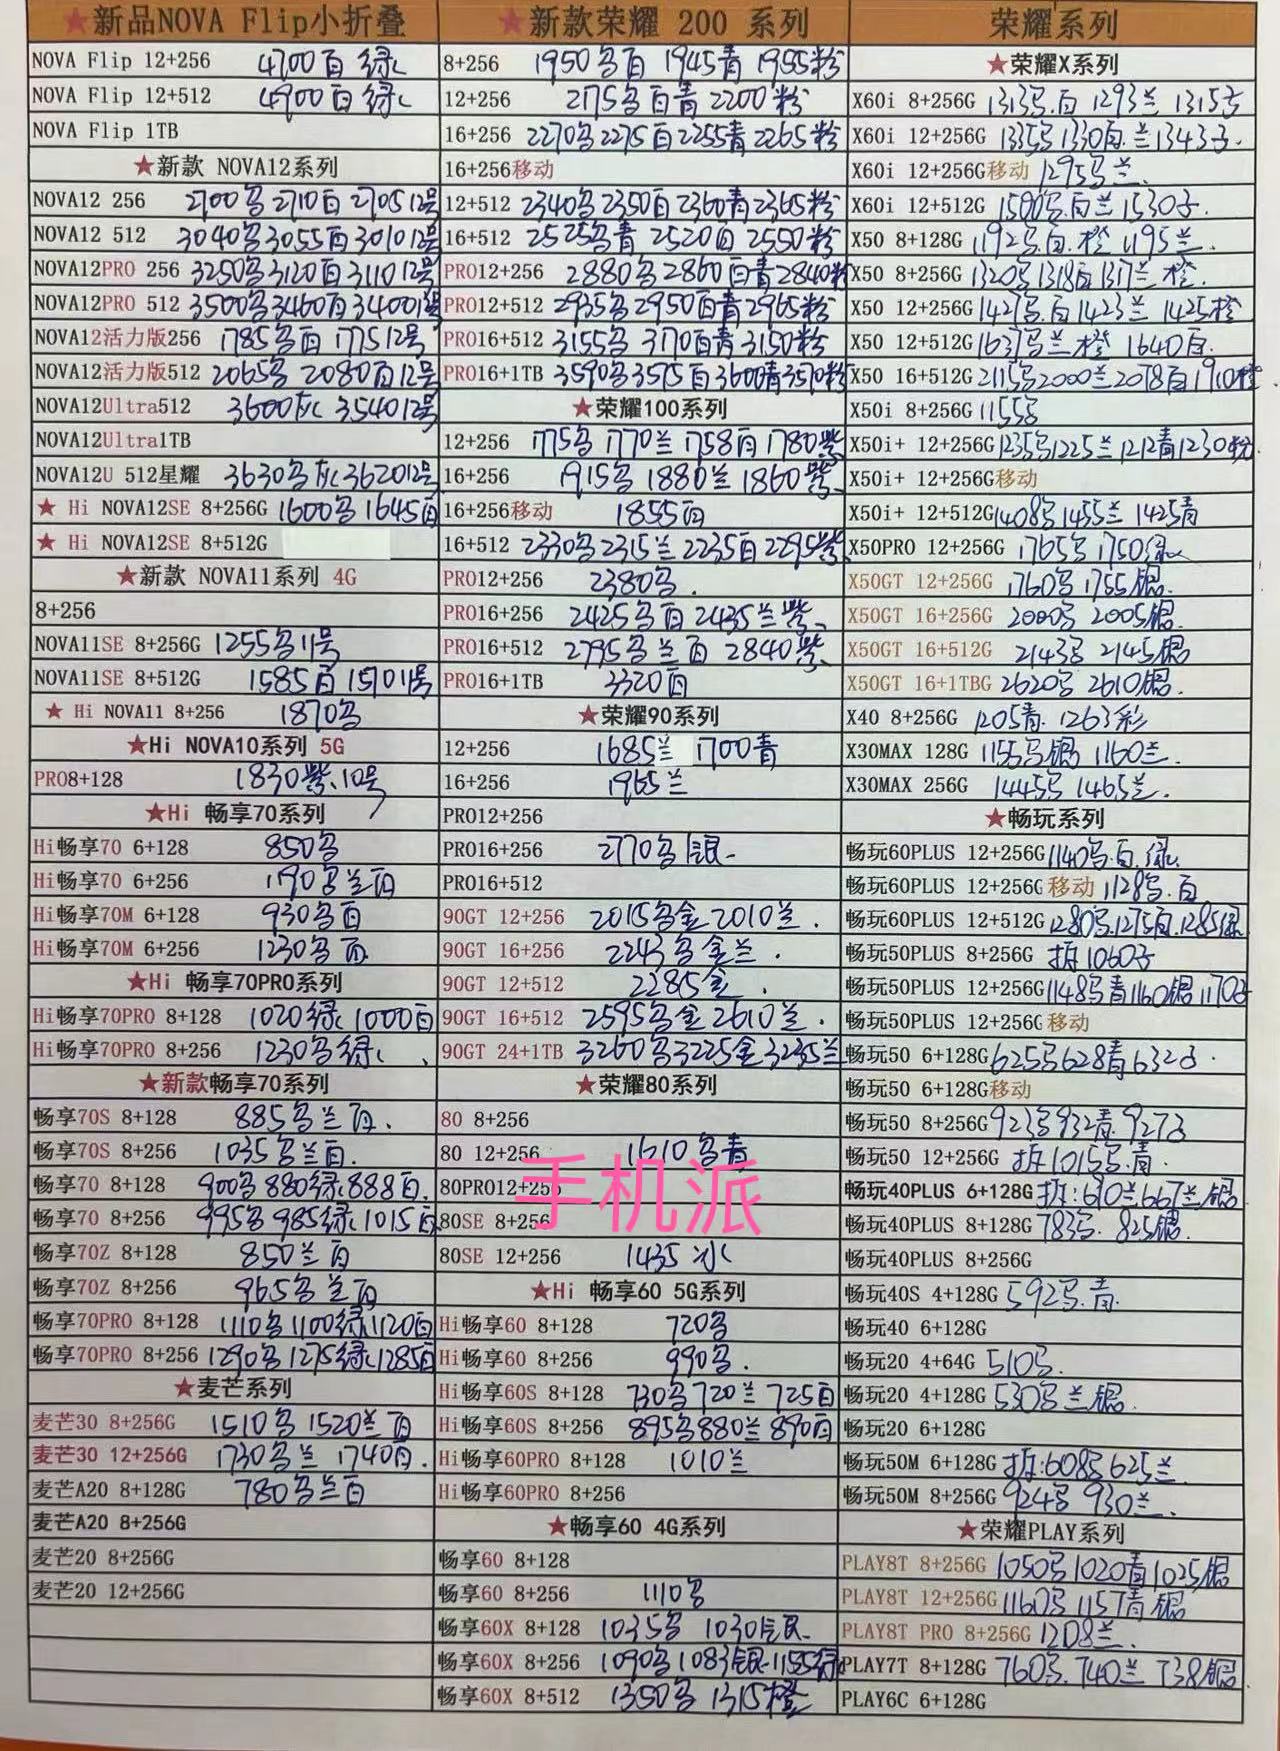 ★新品NOVA Flip小折叠
NOVA Flip 12+256 4700白 绿
NOVA Flip 12+512 4900白绿
NOVA Flip 1TB
★新款 NOVA12系列
NOVA12 256 2700名2710白2705 12号
NOVA12 512 3040名3055白3010 12号
NOVA12PRO 256 3250名3120白3110 12号
NOVA12PRO 512 3500名3460白3400 1号
NOVA12活力版256 1785名白 1775 12号
NOVA12活力版512 2065名 2080白12号
NOVA12Ultra512 3600灰 3540 12号
NOVA12Ultra1TB
NOVA12U 512星耀 3630名灰3620 12号
★ Hi NOVA12SE 8+256G 1600名 1645白
★ Hi NOVA12SE 8+512G
★新款 NOVA11系列 4G
8+256
NOVA11SE 8+256G 1255名11号
NOVA11SE 8+512G 1585白1570 11号
★ Hi NOVA11 8+256 1870名
★Hi NOVA10系列 5G
PRO8+128 1830紫.10号
★Hi 畅享70系列
Hi畅享70 6+128 850名
Hi畅享70 6+256 1190名兰白
Hi畅享70M 6+128 930名白
Hi畅享70M 6+256 1230名白
★Hi 畅享70PRO系列
Hi畅享70PRO 8+128 1020绿 1000白
Hi畅享70PRO 8+256 1230名绿
★新款畅享70系列
畅享70S 8+128 885名兰白.
畅享70S 8+256 1035名兰白.
畅享70 8+128 900名880绿888白.
畅享70 8+256 995名985绿1015白
畅享70Z 8+128 850兰白
畅享70Z 8+256 965名兰白
畅享70PRO 8+128 1110名1100绿1120白
畅享70PRO 8+256 1290名1275绿1285白
★麦芒系列
麦芒30 8+256G 1510名 1520兰白
麦芒30 12+256G 1730名兰 1740白.
麦芒A20 8+128G 780名兰白
麦芒A20 8+256G
麦芒20 8+256G
麦芒20 12+256G
★新款荣耀 200 系列
8+256 1950名白 1945青 1955粉
12+256 2175名白青2200粉
16+256 2270名2275白2255青2265粉
16+256移动
12+512 2340名2350白2360青2365粉
16+512 2525名青 2520白2550粉
PRO12+256 2880名2860白青2840粉
PRO12+512 2935名2950白青2965粉
PRO16+512 3155名 3170白青3150粉
PRO16+1TB 3590名3575白3600青3570粉
★荣耀100系列
12+256 1775名 1770兰1758白1780紫
16+256 1915名1880兰1860紫
16+256移动 1855白
16+512 2330名2315兰2235白2295紫
PRO12+256 2380名.
PRO16+256 2425名白2435兰紫
PRO16+512 2795名兰白 2840紫
PRO16+1TB 3320白
★荣耀90系列
12+256 1685兰 1700青
16+256 1965兰
PRO12+256
PRO16+256 2770名银
PRO16+512
90GT 12+256 2015名金2010兰.
90GT 16+256 2243名金兰.
90GT 12+512 2285金.
90GT 16+512 2595名金2610兰.
90GT 24+1TB 3260名3225金3235兰
★荣耀80系列
80 8+256
80 12+256 1610名青
80PRO12+256
80SE 8+256
80SE 12+256 1435冰
★Hi 畅享60 5G系列
Hi畅享60 8+128 720名
Hi畅享60 8+256 990名.
Hi畅享60S 8+128 730名720兰 725白
Hi畅享60S 8+256 895名880兰890白
Hi畅享60PRO 8+128 1010兰
Hi畅享60PRO 8+256
★畅享60 4G系列
畅享60 8+128
畅享60 8+256 1110名
畅享60X 8+128 1035名 1030银
畅享60X 8+256 1090名1083银1155绿
畅享60X 8+512 1350名 1315橙
荣耀系列
★荣耀X系列
X60i 8+256G 1313名.白 1293兰 1315子
X60i 12+256G 1335名1330白.兰1343子.
X60i 12+256G移动 1295名兰.
X60i 12+512G 1500名.白兰1530子.
X50 8+128G 1192名.白.橙 1195兰.
X50 8+256G 1320名1318白1317兰 橙.
X50 12+256G 1427名.白1423兰 1425橙
X50 12+512G 1637名兰橙 1640白.
X50 16+512G 2115名2000兰2078白1910橙
X50i 8+256G 1155名
X50i+ 12+256G 1235名1225兰1212青1230粉
X50i+ 12+256G移动
X50i+ 12+512G 1408名1455兰 1425青
X50PRO 12+256G 1765名1750绿
X50GT 12+256G 1760名1755银.
X50GT 16+256G 2000名 2005银.
X50GT 16+512G 2143名 2145银
X50GT 16+1TBG 2620名 2610银.
X40 8+256G 1205青. 1263彩
X30MAX 128G 1155名银 1160兰.
X30MAX 256G 1445名 1465兰.
★畅玩系列
畅玩60PLUS 12+256G 1140名.白.绿.
畅玩60PLUS 12+256G移动 1128名.白
畅玩60PLUS 12+512G 1280名.1275白.1285绿
畅玩50PLUS 8+256G 拆1060子
畅玩50PLUS 12+256G 1148名青1160银1170子
畅玩50PLUS 12+256G移动
畅玩50 6+128G 625名628青632子.
畅玩50 6+128G移动
畅玩50 8+256G 923名932青.927子
畅玩50 12+256G 拆1015名.青.
畅玩40PLUS 6+128G 拆:690兰667兰银.
畅玩40PLUS 8+128G 783名. 825银.
畅玩40PLUS 8+256G
畅玩40S 4+128G 592名.青.
畅玩40 6+128G
畅玩20 4+64G 510名.
畅玩20 4+128G 530名兰银.
畅玩20 6+128G
畅玩50M 6+128G 拆:608名625兰
畅玩50M 8+256G 924名 930兰.
★荣耀PLAY系列
PLAY8T 8+256G 1050名1020青1025银
PLAY8T 12+256G 1160名1157青银
PLAY8T PRO 8+256G 1208兰.
PLAY7T 8+128G 760名.740兰 738银
PLAY6C 6+128G
手机派